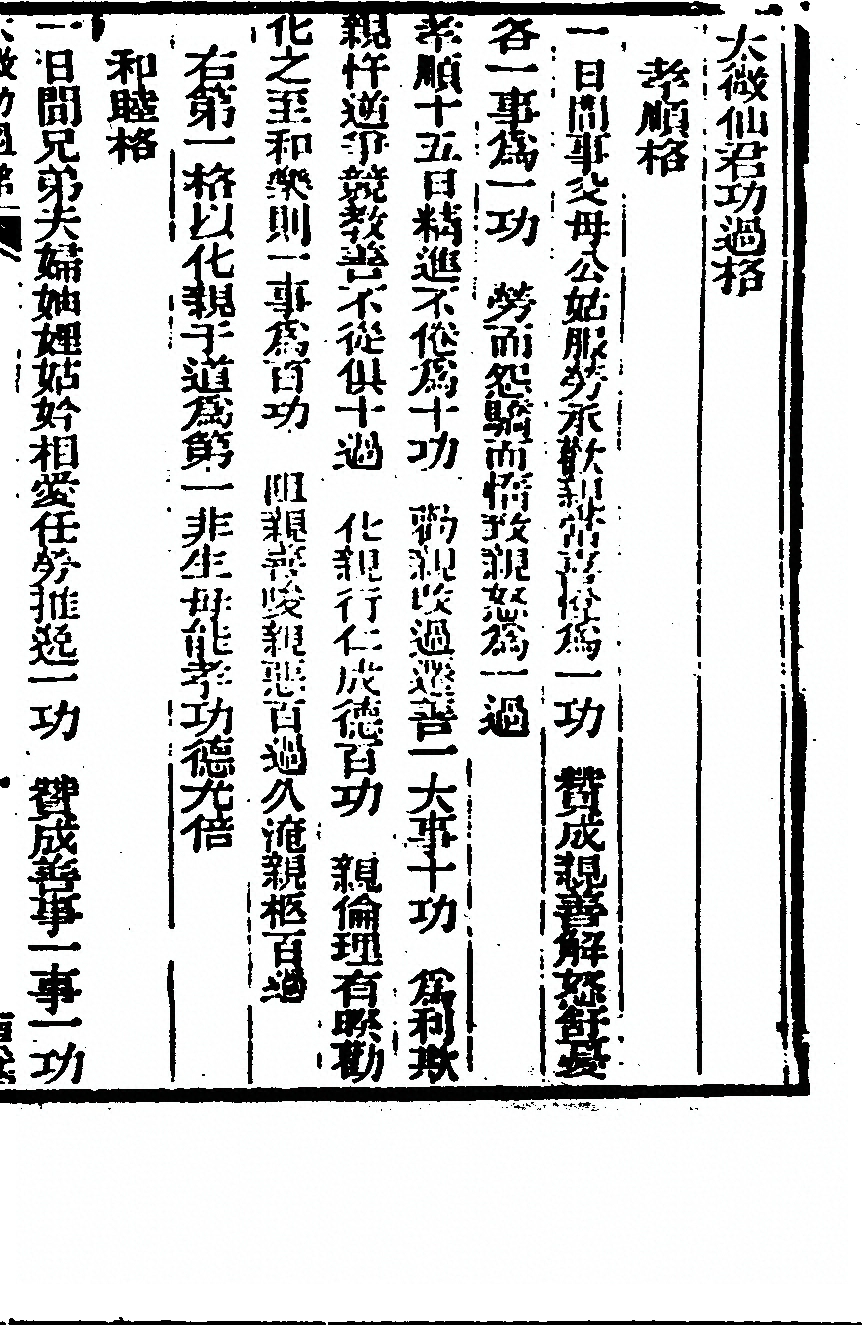 太微仙君功過格
孝順格
一日間事父母公姑服勞承歡親常喜悅爲一功　贊成親善解怒舒憂
各一事爲一功　勞而怨驕而惰致親怒爲一過
孝順十五日精進不倦爲十功　勸親改過遷善一大事十功　爲利欺
親忤逆爭競教善不從俱十過　化親行仁成德百功　親倫理有睽勸
化之至和樂則一事爲百功　阻親善唆親惡百過久淹親柩百過
右第一格以化親于道爲第一非生母能孝功德尤倍
和睦格
一日間兄弟夫婦妯娌姑妗相愛任勞推逸一功　贊成善事一事一功
太微功過格